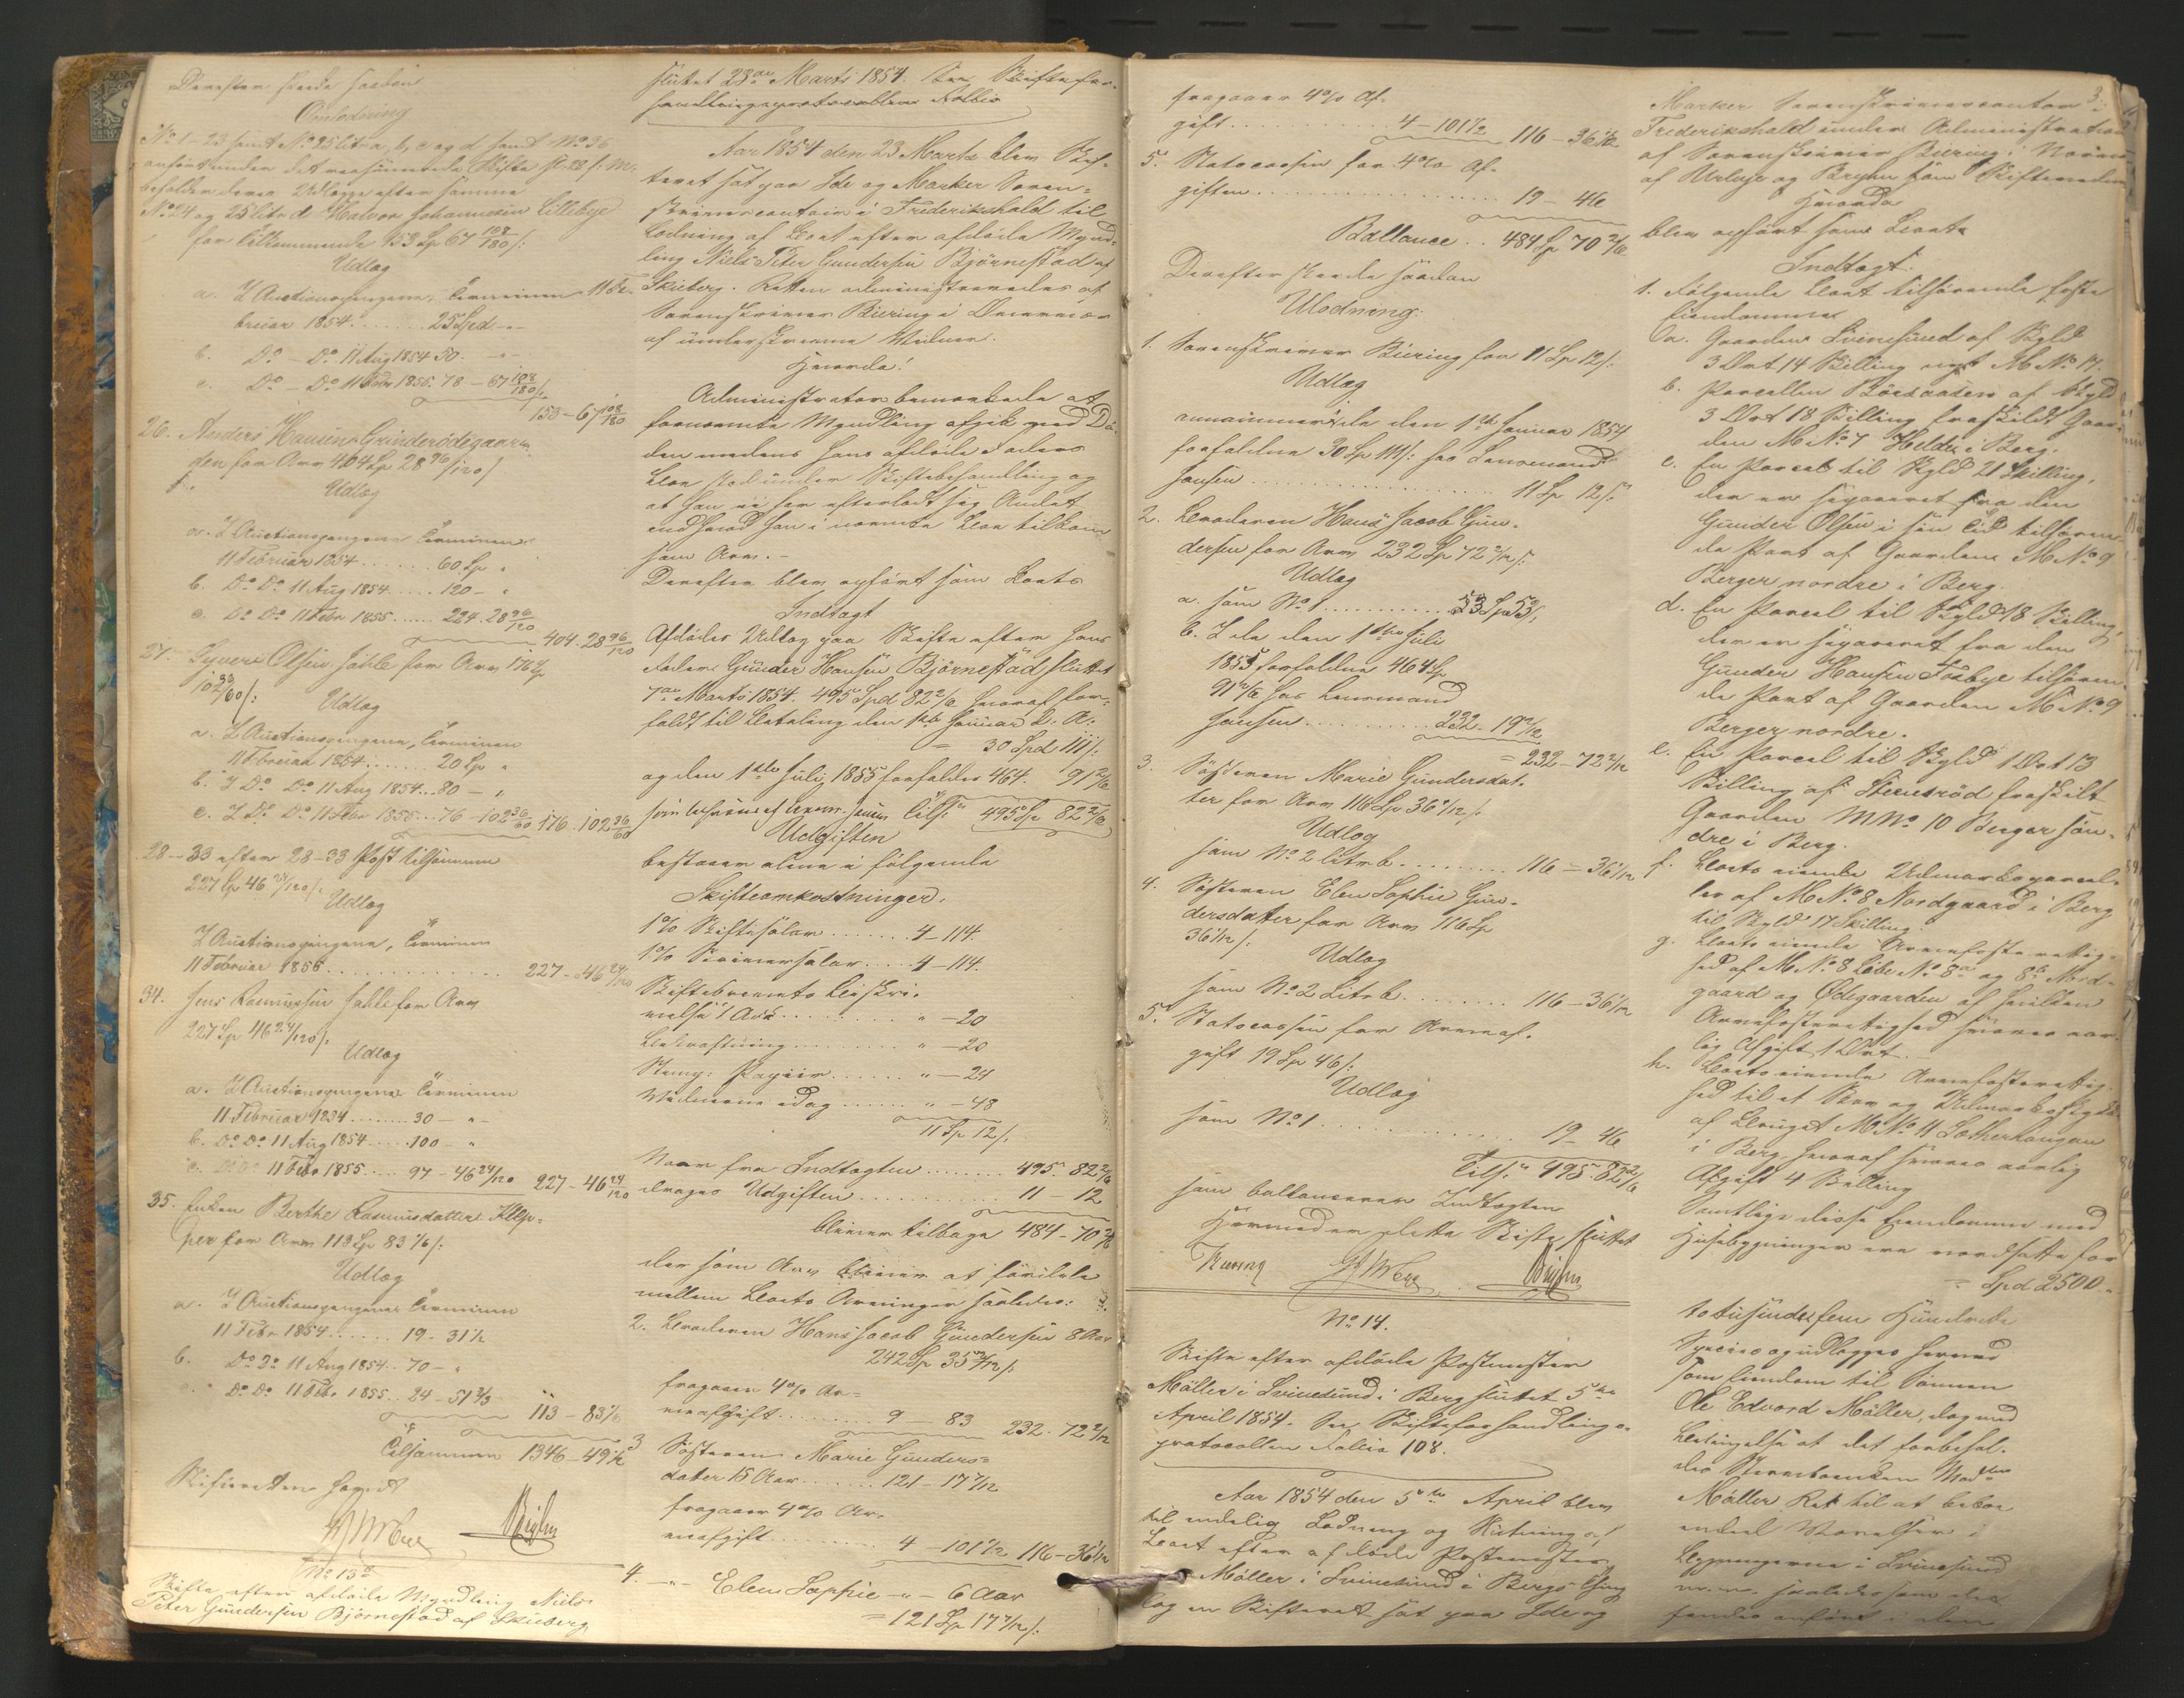 Derefter skeede saadan
Omlodning
No 1-23 samt No 25 litr a, b, c og d samt No 36
beholder deres Udlæg efter samme
No 24 og 25 litr d Halvor Johannesen Lillebye
for tilkommende 153 Sp 67 108/180 /:
Udlæg
a. I Auctionspengene, Terminen 11 Fe-
bruar 1854 ....... 25 Spd - "-
b. Do - Do 11 Aug 1854 50. - "-
c. Do - Do 11 Febr 1855. 78 - 67 108/180 /:
153 - 67 108/180
26. Anders Hansen Grinderödegaar-
den for Arv 404 Sp 28 96/120 /
Udlæg
a. I Auctionspengene Terminen
11 Februar 1854 ....... 60 Sp "
b. Do Do 11 Aug 1854 ..... 120 - "
c. Do Do 11 Febr 1855 ...... 224. 28 96/120
404. 28 96/120
27. Syver Olsen Hable for Arv 176 Sp
102 36/60 /:
Udlæg
a. I Auctionspengene, Terminen
11 Februar 1854 ....... 20 Sp "
b. I Do Do 11 Aug 1854 ... 80 - "
c. I Do Do 11 Febr 1855 ... 76 - 102 36/60 176. 102 36/60
28-33 efter 28-33 Post tilsammen
227 Sp 46 24/120 /:
Udlæg
I Auctionspengene, Terminen
11 Februar 1856 .............. 227 - 46 24/120
34. Jens Rasmussen Hable for Arv
227 Sp 46 24/120 /:
Udlæg
a. I Auctionspengene Terminen
11 Februar 1854 ........ 30 - " -
b. Do Do 11 Aug 1854 ..... 100 - "
c. Do Do 11 Febr 1855 .... 97 - 46 24/120 227 - 46 24/120
35. Enken Berthe Rasmusdatter Klep-
per for Arv 113 Sp 83 1/6 /:
Udlæg
a. I Auctionspengene Terminen
11 Febr 1854 ....... 19 - 31 1/2
b. Do Do 11 Aug 1854 .. 70 - "
c. Do Do 11 Febr 1855 .. 24 - 51 2/3
113 - 83 1/6
Tilsammen 1346 - 49 1/2
Skifteretten hævet
No 13
Skifte efter afdöde Myndling Niels
Peter Gundersen Björnestad af Skieberg
sluttet 23de Marts 1854. See Skiftefor-
handlingsprotocollens Follio
Aar 1854 den 23 Marts blev Skif-
teret sat paa Ide og Marker Soren-
skrivercontoir i Frederikshald til
Lodning af Boet efter afdöde Mynd-
ling Niels Peter Gundersen Björnestad af
Skieberg. Retten administreredes af
Sorenskriver Biering i Overvær
af underskrevne Vidner.
Hvorda!
Administrator bemærkede at
fornævnte Myndling afgik ved Dö-
den medens hans afdöde Faders
Boe stod under Skiftebehandling og
at han ei har efterladt sig Andet
end hvad han i nævnte Boe tilkom
som Arv. -
Derefter blev opfört som Boets
Indtægt
Afdödes Udlæg paa Skifte efter hans
Fader Gunder Hansen Björnestad sluttet
7de Marts 1854. 495 Spd 82 2/6 hvoraf for-
faldt til Betaling den 1ste Januar D. A:
= 30 Spd 111 /:
og den 1ste Juli 1855 forfalder 464. 91 2/6
Tils: 495 Sp 82 2/6
Udgiften
bestaaer alene i fölgende
Skifteomkostninger.
1% Skiftesalær ....... 4 - 114.
1% Skriversalær ..... 4 - 114.
Skiftebrevets Beskri-
velse 1 Ark ......... " - 20
Bekræftning ......... " - 20
Stemp: Papiir ...... " - 24
Vidnerne idag ...... " - 48
11 Sp 12 /:
Naar fra Indtægten ........ 495 82 2/6
drages Udgiften ............ 11 - 12
bliver tilbage 484 - 70 2/6
der som Arv bliver at fordele
mellem Boets Arvinger saaledes:
2. Broderen Hans Jacob Gundersen 8 Aar
242 Sp 35 2/12 /:
fragaaer 4% Ar-
veafgift ......... 9 - 83 232. 72 2/12
3 Sösteren Marie Gunders-
dater 15 Aar ...... 121 - 17 7/12
fragaaer 4% Ar-
veafgift ........... 4 - 101 1/2 116 - 36 1/12
4. - " - Elen Sophie - " - 6 Aar
= 121 Sp 17 7/12 /:
fragaaer 4% Af-
gift .............. 4 - 101 1/2 116 - 36 1/12
5. Statscassen for 4% Af-
giften ................. 19 - 46
Ballance .. 484 Sp 70 2/6
Derefter skeede saadan
Udlodning.
1. Sorenskriver Biering for 11 Sp 12 /:
Udlæg
den 1ste Januar 1854
forfaldne 30 Sp 111 /: hos Lensmand
Hansen .................... 11 Sp 12 /:
2. Broderen Hans Jacob Gun-
dersen for Arv 232 Sp 72 2/12 /:
Udlæg
a. som No 1 ........... 53 /:
b. I de den 1ste Juli
1855 forfaldne 464 Sp
91 2/6 hos Lensmand
Hansen .......... 232 - 19 2/12
= 232 - 72 2/12
3. Sösteren Marie Gundersdat-
ter for Arv 116 Sp 36 1/12 /:
Udlæg
som No 2 litr b ........ 116 - 36 1/12
4. Sösteren Elen Sophie Gun-
dersdater for Arv 116 Sp
36 1/12 /:
Udlæg
som No 2 Litr b ........ 116 - 36 1/12
5. Statscassen for Arveaf-
gift 19 Sp 46 /:
Udlæg
som No 1 .............. 19 - 46
Tils: 495. 82 2/6
som ballancerer Indtægten
Hermed er dette Skifte sluttet
Biering
No 14.
Skifte efter afdöde Postmester
Möller i Svinesund i Berg sluttet 5te
April 1854. See Skifteforhandlings-
protocollen Folio 108.
Aar 1854 den 5te April blev
til endelig Lodning og Slutning af
Boet efter afdöde Postmester
Möller i Svinesund i Bergs Sogn
dag en Skifteret sat paa Ide og
3.
Marker Sorenskrivercontor i
Frederikshald under Administration
af Sorenskriver Biering i Nærvær
af Urbye og Bryhn som Skiftevidner
Hvorda
blev opfört som Boets
Indtægt.
1. Fölgende Boet tilhörende faste
Eiendomme
a. Gaarden Svinesund af Skyld
3 Ort 14 Skilling nyt M No 17.
b. Parcellen Böesaasen af Skyld
3 Ort 18 Skilling fraskildt Gaar-
den M No 7 Helder i Berg.
c. En Parcel til Skyld 21 Skilling,
der er separeret fra den
Gunder Olsen i sin Tid tilhören-
de Part af Gaarden M No 9
Berger nordre i Berg.
d. En Parcel til Skyld 18 Skilling,
der er separeret fra den
Gunder Hansen Fosbye tilhören-
de Part af Gaarden M No 9
Berger nordre.
e. En Parcel til Skyld 1 Ort 13
Skilling af Steensröd fraskilt
Gaarden M No 10 Berger sön-
dre i Berg.
f. Boets eiende Udmarksparcel-
ler af M No 8 Nordgaard i Berg
til Skyld 17 Skilling.
g. Boets eiende Arvefesterettig-
hed af M No 8 Löbe No 8a og 8b Nord-
gaard og Ödegaarden af hvilken
Arvefesterettighed svares aar-
lig Afgift 1 Ort. -
h. Boets eiende Arvefesterettig-
hed til et Skov og Udmarksstykke
af Bruget M No 11 Lotherhougen
i Berg, hvoraf svares aarlig
Afgift 4 Skilling
Samtlige disse Eiendomme med
Husebygninger ere værdsatte for
= Spd 2500 "
totusinde fem Hundrede
Species og udlægges herved
som Eiendom til Sönnen
Ole Edvard Möller, dog med
Betingelse at det forbehol-
des Sterboenken Mad
Möller Ret til at beboe
endeel Værelser i
Bygningerne i Svinesund
m.m. saaledes som der
findes anfört i den